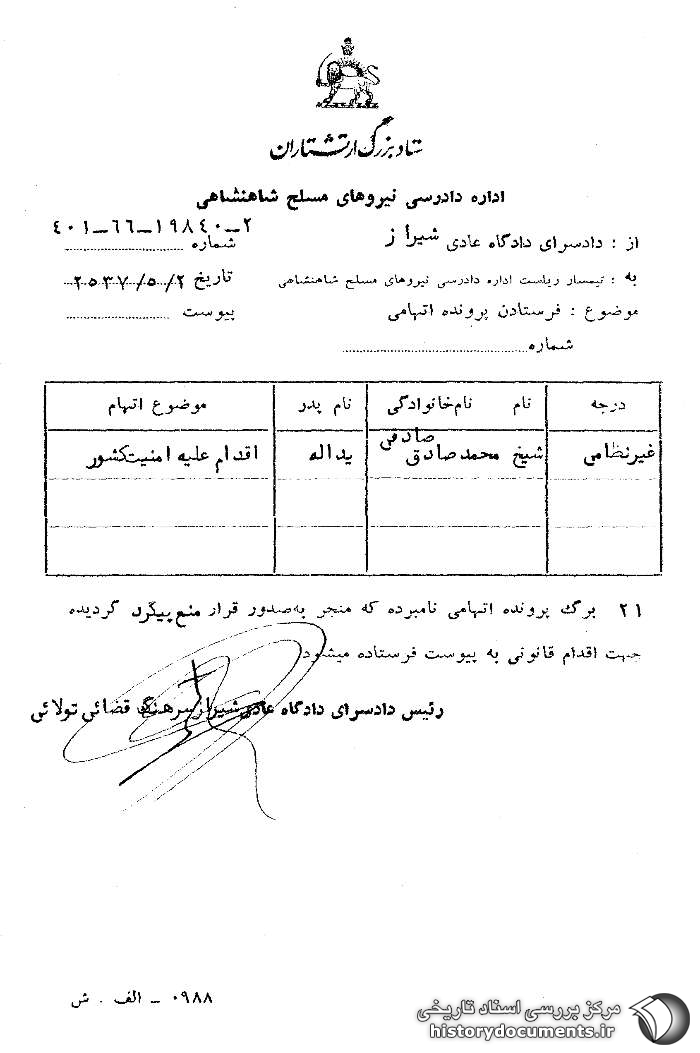 ستاد بزرگ ارتشتاران
اداره دادرسی نیروهای مسلح شاهنشاهی
از : دادسرای دادگاه عادی شیراز
شماره ۲-۱۹۸۴۰-۶۶-۴۰۱
به : تیمسار ریاست اداره دادرسی نیروهای مسلح شاهنشاهی
تاریخ ۲۵۳۷/۵/۲
موضوع : فرستادن پرونده اتهامی
پیوست
شماره
درجه نام نام‌خانوادگی نام پدر موضوع اتهام
غیرنظامی شیخ محمدصادق صادقی یداله اقدام علیه امنیت‌کشور
۲۱ برگ پرونده اتهامی نامبرده که منجر به‌صدور قرار منع پیگرد گردیده
جهت اقدام قانونی به پیوست فرستاده میشود.
رئیس دادسرای دادگاه عادی شیراز سرهنگ قضائی تولائی
۰۹۸۸ - الف . ش
مرکز بررسی اسناد تاریخی
historydocuments.ir